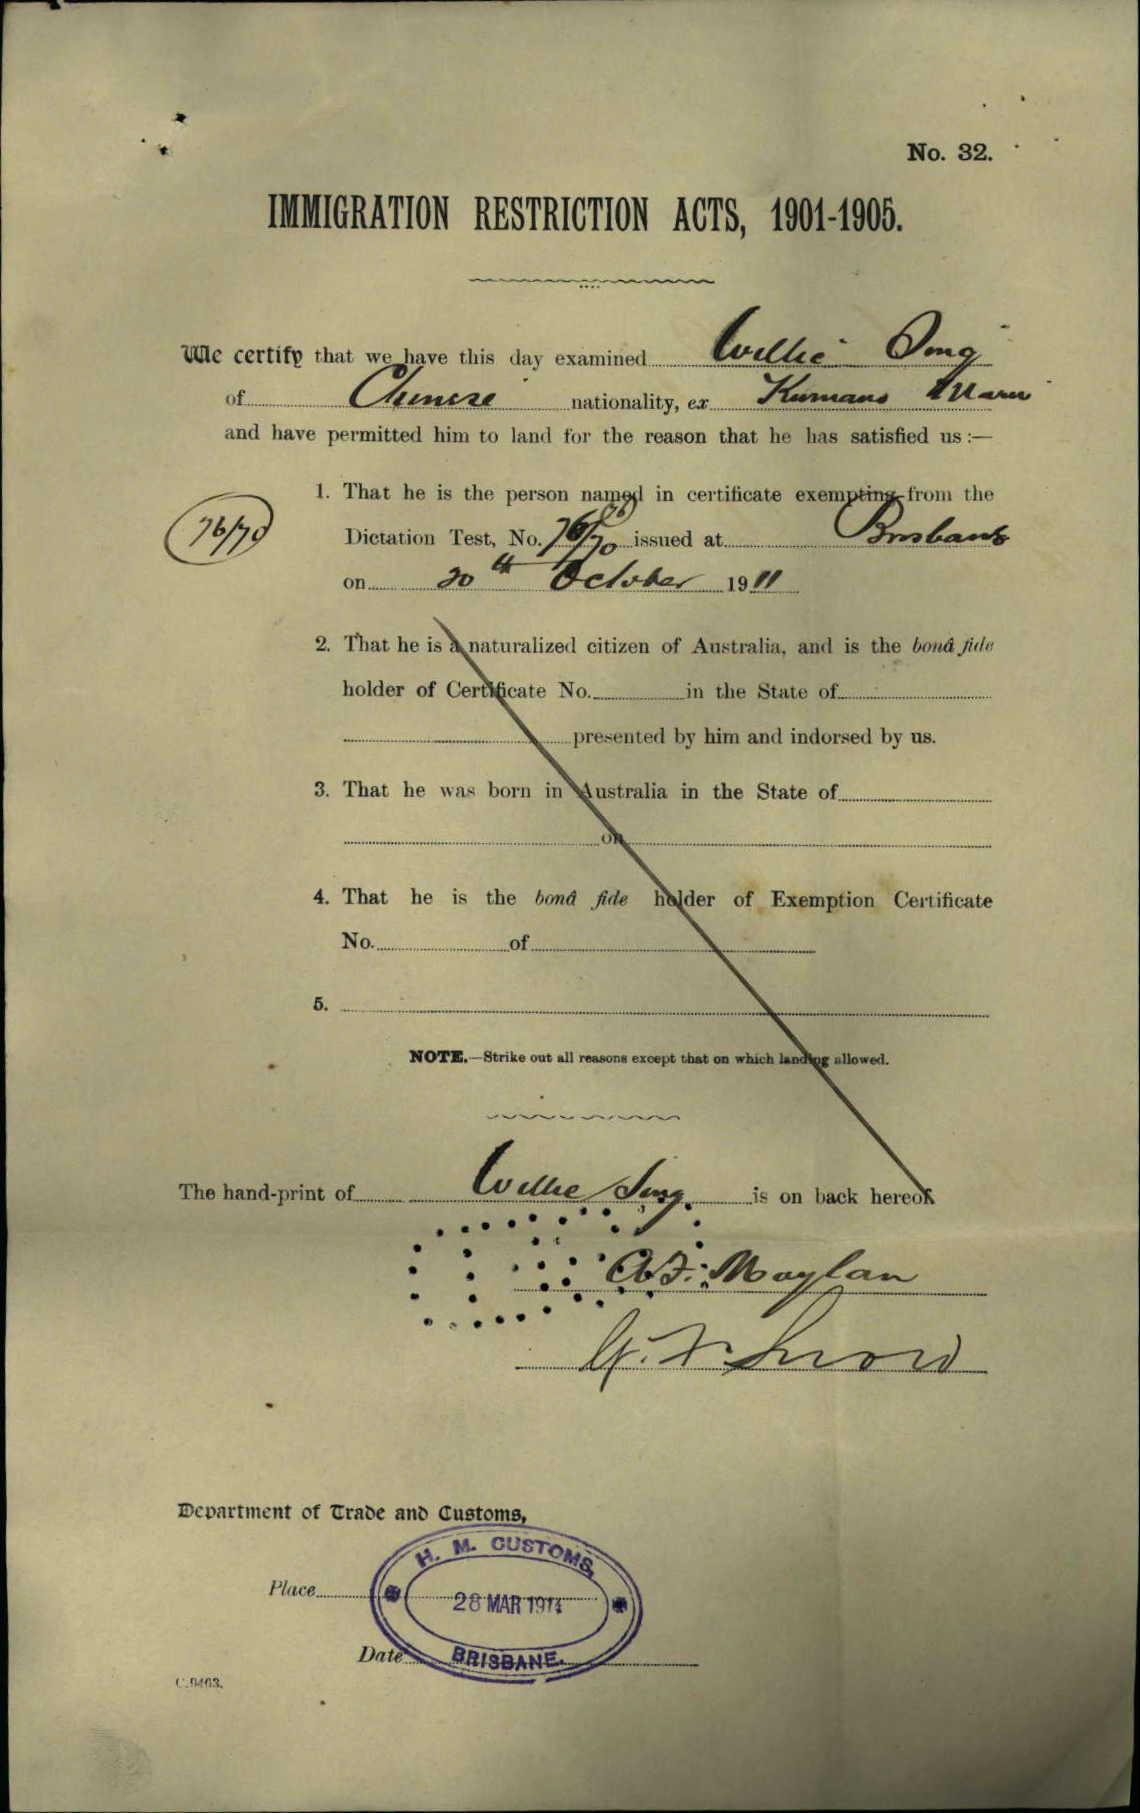 No. 32.
IMMIGRATION RESTRICTION ACTS, 1901-1905.
We certify that we have this day examined Willie Sing
of Chinese nationality, ex Kumano Maru
and have permitted him to land for the reason that he has satisfied us :—
1. That he is the person named in certificate exempting from the
76/70
Dictation Test, No. 76/70 issued at Brisbane
on 20th October 1911
2. That he is a naturalized citizen of Australia, and is the bonâ fide
holder of Certificate No. in the State of
presented by him and indorsed by us.
3. That he was born in Australia in the State of
on
4. That he is the bonâ fide holder of Exemption Certificate
No. of
5.
NOTE.—Strike out all reasons except that on which landing allowed.
The hand-print of Willie Sing is on back hereof.
A.F. Moylan
G. F. Snow
Department of Trade and Customs,
H. M. CUSTOMS,
Place
28 MAR 1914
Date
BRISBANE.
C.9463.